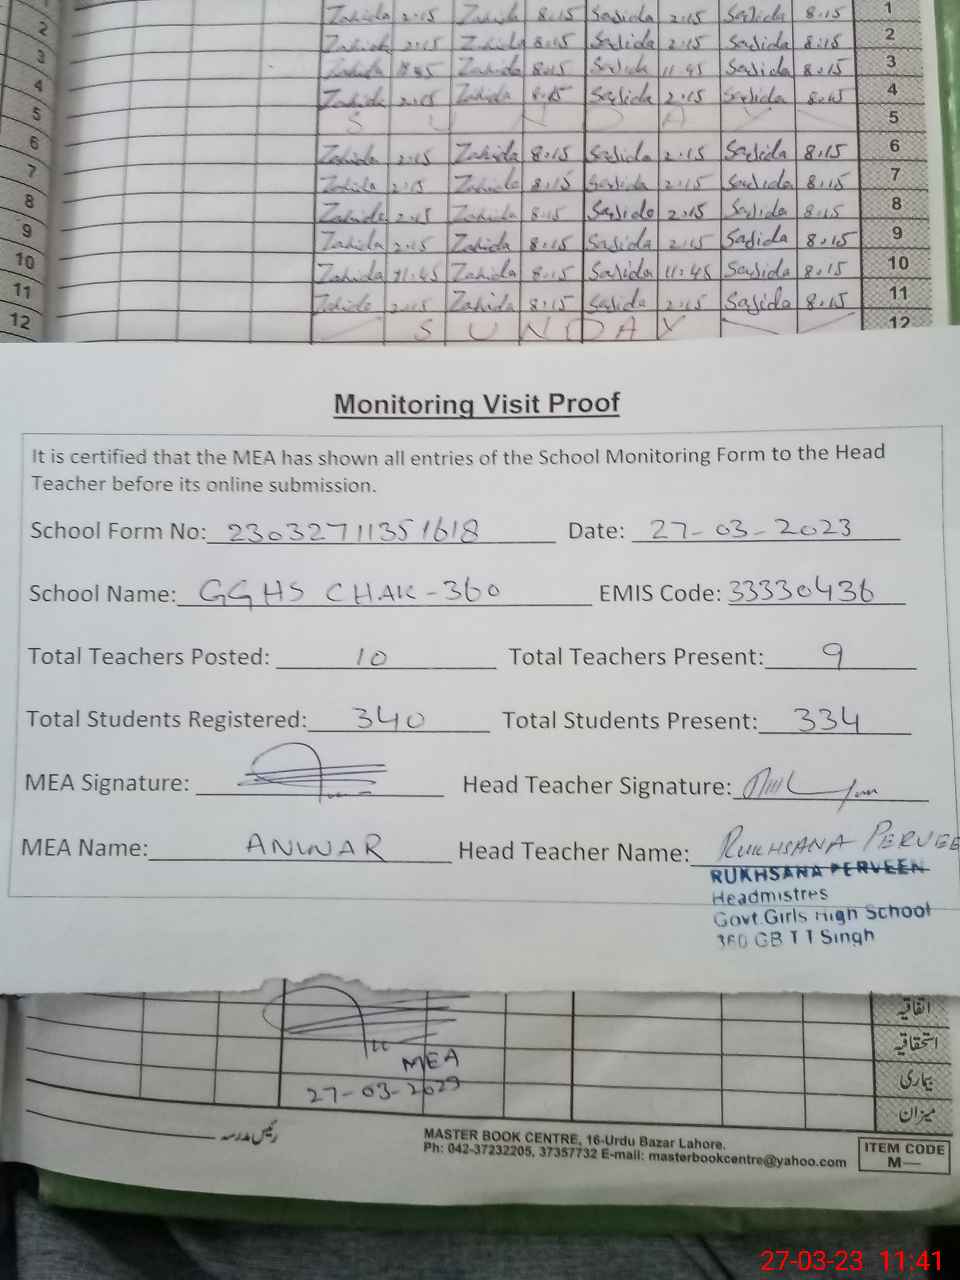 1
Zahida 2.15 Zahida 8.15 Sajida 2.15 Sajida 8.15 1
2 Zahida 2.15 Zahida 8.15 Sajida 2.15 Sajida 8.15 2
3 Zahida 11.45 Zahida 8.15 Sajida 11.45 Sajida 8.15 3
4 Zahida 2.15 Zahida 8.15 Sajida 2.15 Sajida 8.15 4
5 SUNDAY 5
6 Zahida 2.15 Zahida 8.15 Sajida 2.15 Sajida 8.15 6
7 Zahida 2.15 Zahida 8.15 Sajida 2.15 Sajida 8.15 7
8 Zahida 2.15 Zahida 8.15 Sajida 2.15 Sajida 8.15 8
9 Zahida 2.15 Zahida 8.15 Sajida 2.15 Sajida 8.15 9
10 Zahida 11.45 Zahida 8.15 Sajida 11.45 Sajida 8.15 10
11 Zahida 2.15 Zahida 8.15 Sajida 2.15 Sajida 8.15 11
12 SUNDAY 12
Monitoring Visit Proof
It is certified that the MEA has shown all entries of the School Monitoring Form to the Head
Teacher before its online submission.
School Form No: 23032711351618 Date: 27-03-2023
School Name: GGHS CHAK-360 EMIS Code: 33330436
Total Teachers Posted: 10 Total Teachers Present: 9
Total Students Registered: 340 Total Students Present: 334
MEA Signature: Head Teacher Signature:
MEA Name: ANWAR Head Teacher Name: RUKHSANA PERVEE
RUKHSANA PERVEEN
Headmistres
Govt Girls High School
360 GB T T Singh
اتفاقیہ
استحقاقیہ
MEA
بیماری
27-03-2023
میزان
رئیس مدرسہ
MASTER BOOK CENTRE, 16-Urdu Bazar Lahore.
Ph: 042-37232205, 37357732 E-mail: masterbookcentre@yahoo.com
ITEM CODE
M—
27-03-23 11:41